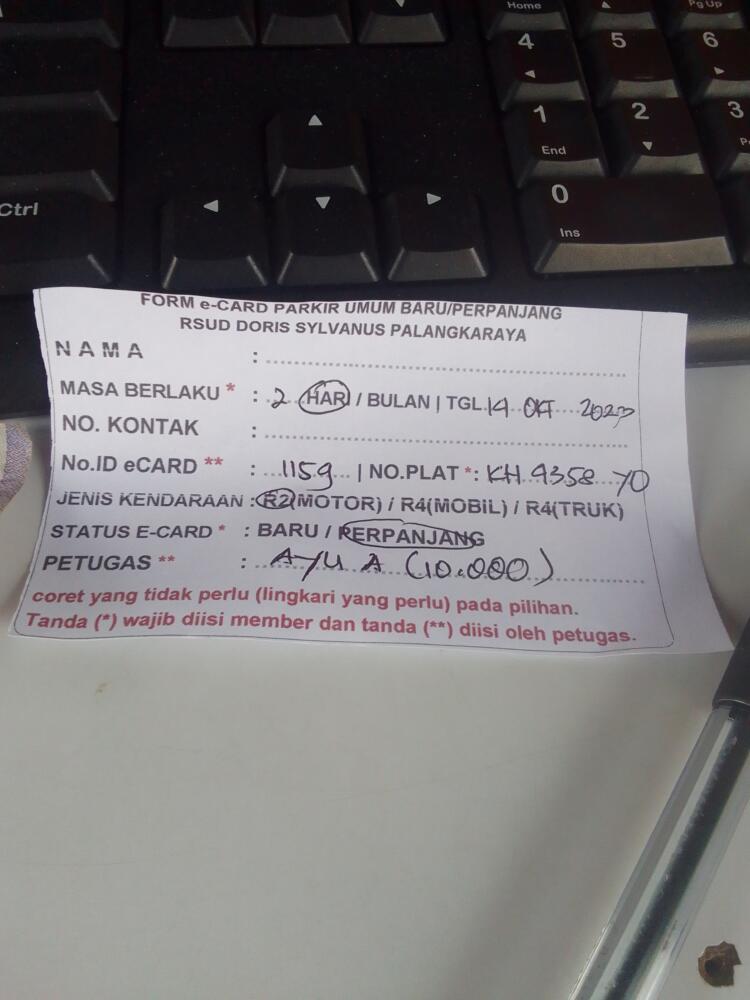 Home
Pg Up
4
5
6
1
End
2
3
Ctrl
0
Ins
FORM e-CARD PARKIR UMUM BARU/PERPANJANG
RSUD DORIS SYLVANUS PALANGKARAYA
NAMA :
MASA BERLAKU * : 2 HARI / BULAN | TGL. 14 OKT 2023
NO. KONTAK :
No.ID eCARD ** : 1159 | NO.PLAT *: KH 4358 YO
JENIS KENDARAAN : R2(MOTOR) / R4(MOBIL) / R4(TRUK)
STATUS E-CARD * : BARU / PERPANJANG
PETUGAS ** : AYU A (10.000)
coret yang tidak perlu (lingkari yang perlu) pada pilihan.
Tanda (*) wajib diisi member dan tanda (**) diisi oleh petugas.